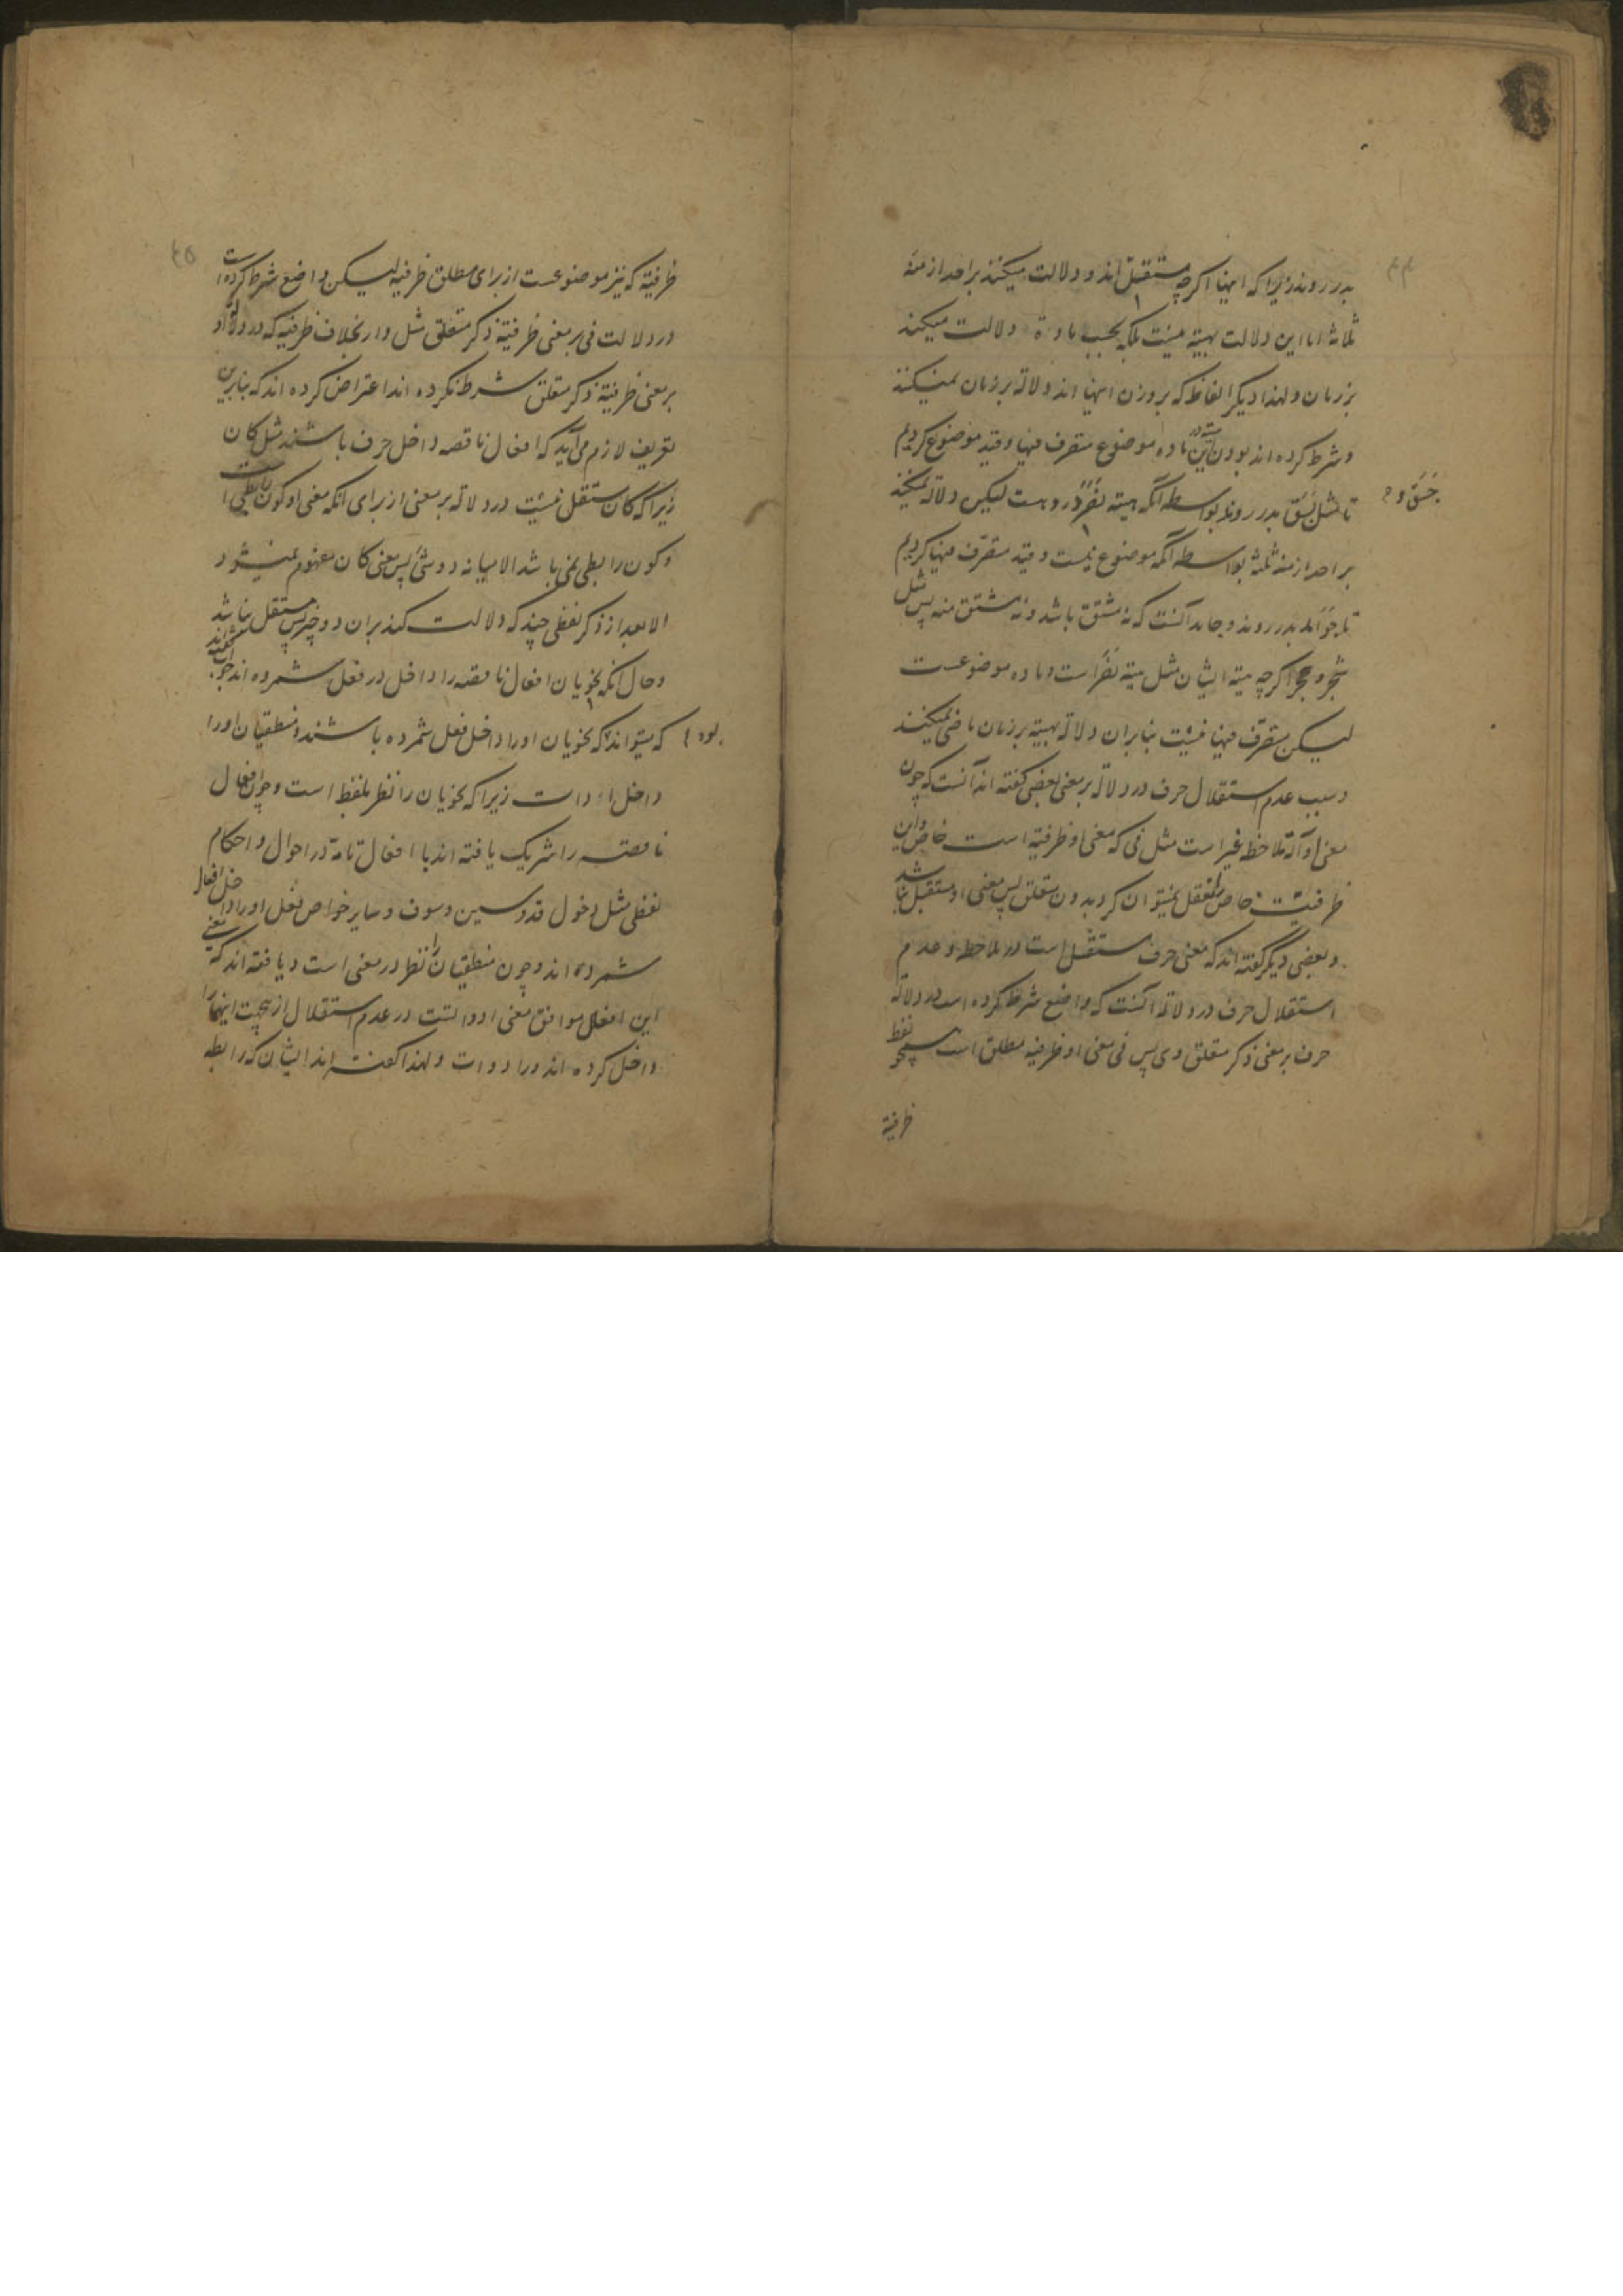 بدر روند زیرا که اینها اگرچه مستقل اند و دلالت میکنند براحد ازمنهٔ
ثلاثه اما این دلالت بهیئة نیست بلکه بحسب مادة دلالت میکند
بر زمان ولهذا دیگر الفاظ که بر وزن اینها اند دلالة بر زمان نمیکنند
و شرط کرده اند بودن این هیئة در ماده موضوع متصرف فیها و قید موضوع کردیم
تا مثل نَسَقَ بدر روند بواسطه آنکه هیئة نَصَرَ در وهست لیکن دلالة نمیکند
جَسَقَ و
بر احد ازمنه ثلثه بواسطه آنکه موضوع نیست و قید متصرف فیها کردیم
تا جوامد بدر روند و جامد آنست که نه مشتق باشد و نه مشتق منه پس مثل
شجر و حجر اگرچه هیئة ایشان مثل هیئة نَصَرَ است و ماده موضوعست
لیکن متصرف فیها نیست بنابران دلالة بهیئة بر زمان ماضی نمیکنند
و سبب عدم استقلال حرف در دلالة بر معنی بعضی گفته اند آنست که چون
معنی او آلة ملاحظه غیر است مثل فی که معنی او ظرفیة است خاص و این
ظرفیّت خاص را تعقل نمیتوان کرد بدون متعلق پس معنی او مستقل نباشد
و بعضی دیگر گفته اند که معنی حرف مستقل است در ملاحظه و عدم
استقلال حرف در دلالة آنست که واضع شرط کرده است در دلالة
حرف بر معنی ذکر متعلق وی پس فی معنی او ظرفیه مطلق است همچو لفظ
ظرفیة
ظرفیّة که نیز موضوعست از برای مطلق ظرفیه لیکن واضع شرط کرده است
در دلالت فی بر معنی ظرفیّة ذکر متعلق مثل دار بخلاف ظرفیه که در دلالة او
بر معنی ظرفیّة ذکر متعلق شرط نکرده اند اعتراض کرده اند که بنابرین
تعریف لازم می‌آید که افعال ناقصه داخل حرف باشند مثل کان
زیرا که کان مستقل نیست در دلالة بر معنی از برای آنکه معنی او کون رابطی است
و کون رابطی نمی باشد الا میانه دو شئ پس معنی کان مفهوم نمیشود
الا بعد از ذکر لفظی چند که دلالت کند بران دو چیز پس مستقل نباشد
و حال آنکه نحویان افعال ناقصه را داخل در فعل شمرده اند جواب گفته اند
که میتواند بود که نحویان اورا داخل فعل شمرده باشند و منطقیان اورا
داخل ادات زیرا که نحویان را نظر بلفظ است و چون افعال
ناقصه را شریک یافته اند با افعال تامّة در احوال و احکام
لفظی مثل دخول قد و سین و سوف و سایر خواص فعل اورا داخل افعال
شمرده اند و چون منطقیان را نظر در معنی است و یافته اند که معنی
این افعال موافق معنی ادواتست در عدم استقلال ازین جهت اینها را
داخل کرده اند در ادوات ولهذا گفته اند ایشان که رابطه